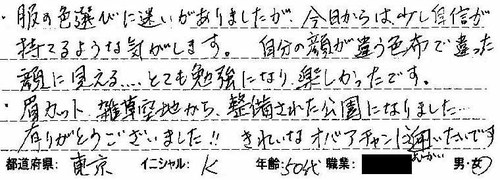 ・服の色選びに迷いがありましたが、今日からは少し自信が
持てるような気がします。 自分の顔が違う色布で違った
顔に見える....とても勉強になり楽しかったです。
・眉カット 雑草空地から、整備された公園になりました…
ありがとうございました!! きれいなオバアチャンに向いたいです
都道府県: 東京 イニシャル: K 年齢: 50代 職業: 男・女